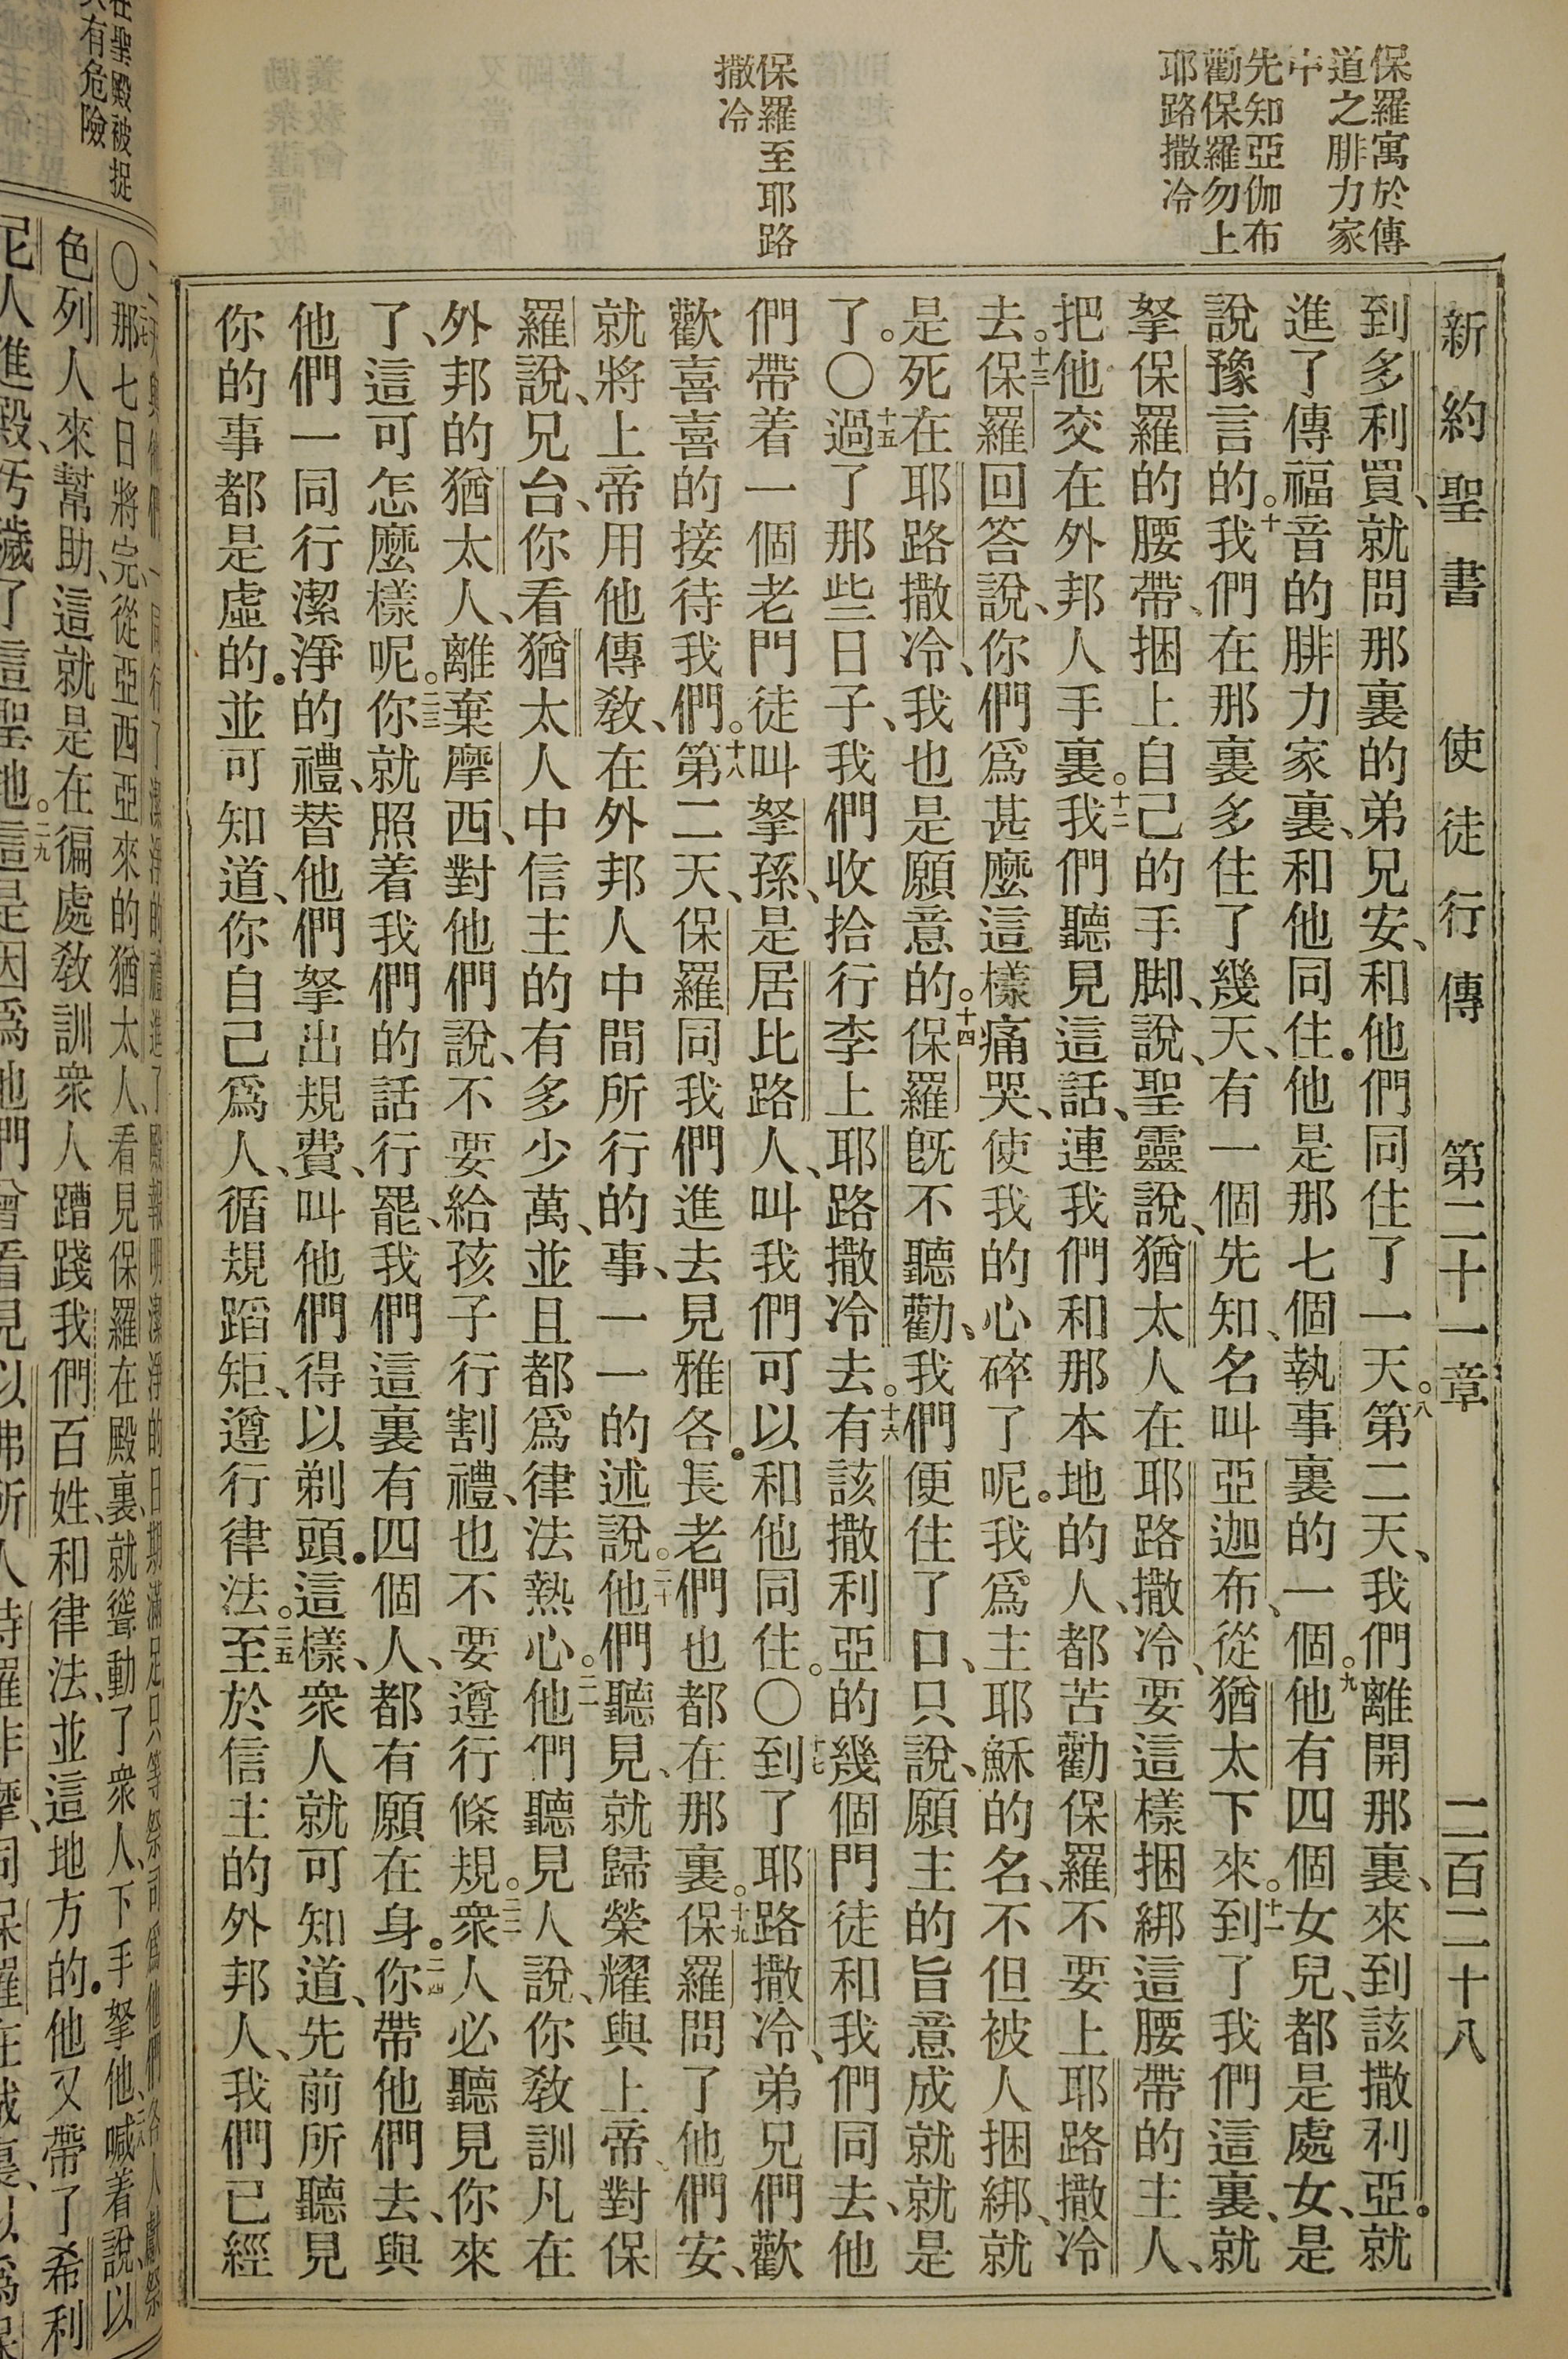 保羅寓於傳
道之腓力家
中
先知亞伽布
勸保羅勿上
耶路撒冷
保羅至耶路
撒冷
新約聖書 使徒行傳 第二十一章 二百二十八
到多利買、就問那裏的弟兄安、和他們同住了一天。八第二天、我們離開那裏、來到該撒利亞。就
進了傳福音的腓力家裏、和他同住。他是那七個執事裏的一個。九他有四個女兒、都是處女、是
說豫言的。十我們在那裏多住了幾天、有一個先知、名叫亞迦布、從猶太下來。十一到了我們這裏、就
拏保羅的腰帶、捆上自己的手脚、說、聖靈說、猶太人在耶路撒冷、要這樣捆綁這腰帶的主人、
把他交在外邦人手裏。十二我們聽見這話、連我們和那本地的人、都苦勸保羅不要上耶路撒冷
去。十三保羅回答說、你們爲甚麼這樣痛哭、使我的心碎了呢。我爲主耶穌的名、不但被人捆綁、就
是死在耶路撒冷、我也是願意的。十四保羅旣不聽勸、我們便住了口、只說、願主的旨意成就就是
了。〇十五過了那些日子、我們收拾行李上耶路撒冷去。十六有該撒利亞的幾個門徒和我們同去、他
們帶着一個老門徒叫拏孫、是居比路人、叫我們可以和他同住。〇十七到了耶路撒冷、弟兄們歡
歡喜喜的接待我們。十八第二天、保羅同我們進去見雅各。長老們也都在那裏。十九保羅問了他們安、
就將上帝用他傳敎、在外邦人中間所行的事、一一的述說。二十他們聽見、就歸榮耀與上帝、對保
羅說、兄台、你看猶太人中信主的有多少萬、並且都爲律法熱心。二一他們聽見人說、你敎訓凡在
外邦的猶太人、離棄摩西、對他們說、不要給孩子行割禮、也不要遵行條規。二二衆人必聽見你來
了、這可怎麼樣呢。二三你就照着我們的話行罷、我們這裏有四個人、都有願在身。二四你帶他們去、與
他們一同行潔淨的禮、替他們拏出規費、叫他們得以剃頭。這樣、衆人就可知道、先前所聽見
你的事都是虛的。並可知道、你自己爲人、循規蹈矩、遵行律法。二五至於信主的外邦人、我們已經
在聖殿被捉
有危險
〇二七那七日將完、從亞西亞來的猶太人、看見保羅在殿裏、就聳動了衆人、下手拏他、二八喊着說、以
色列人來幫助、這就是在徧處敎訓衆人蹧踐我們百姓、和律法、並這地方的。他又帶了希利